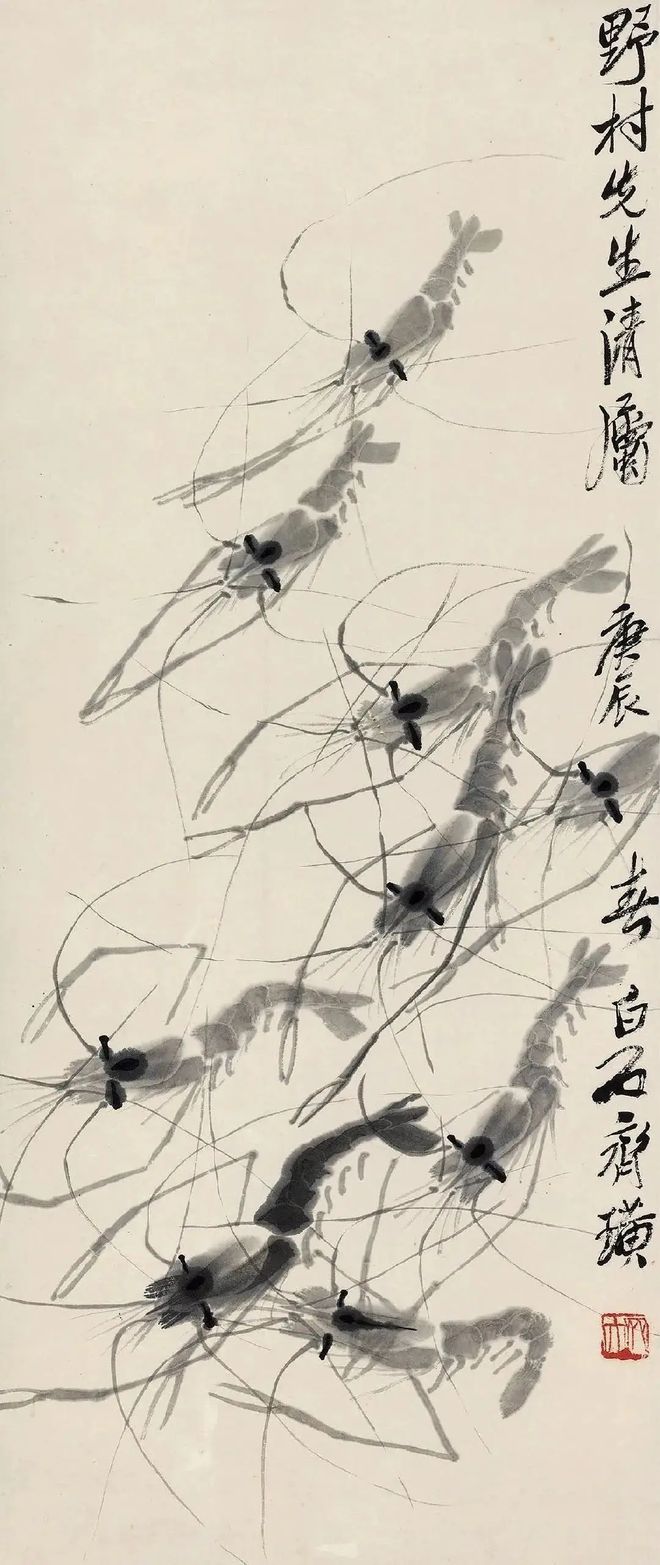 野村先生清属
庚辰
春
白石齊璜